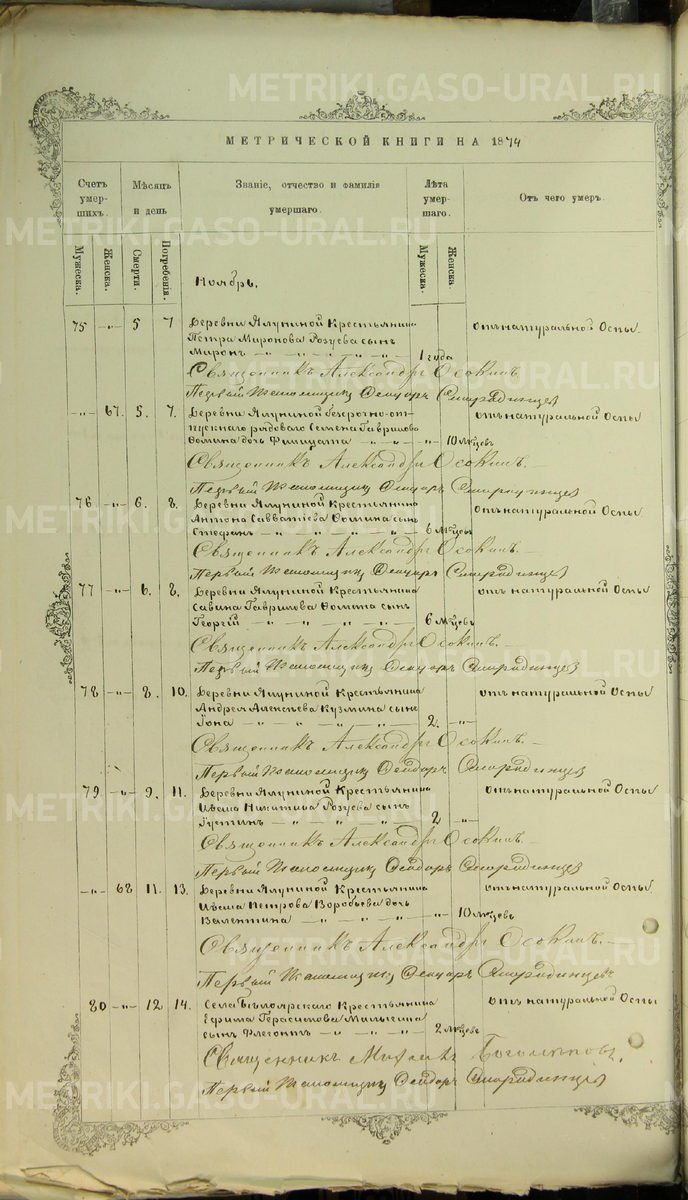 МЕТРИЧЕСКОЙ КНИГИ НА 1874
Счетъ умер-шихъ. Мѣсяцъ и день Званіе, отчество и фамилія умершаго. Лѣта умер-шаго. Отъ чего умеръ.
Мужеска. Женска. Смерти. Погребенія. Мужеска. Женска.
Ноябрь.
75 -„- 5 7 Деревни Ялуниной Крестьянина отъ натуральной Оспы
Петра Миронова Розуева сынъ
Миронъ 1 года
Священникъ Александръ Осокинъ
Первый Псаломщикъ Ѳеодоръ Смородинцевъ
-„- 67. 5. 7. Деревни Ялуниной безсрочно-от- отъ натуральной Оспы
пускнаго рядоваго Семена Гаврилова
Ѳомина дочь Фелицата -„- 10 мѣсцевъ
Священникъ Александръ Осокинъ.
Первый Псаломщикъ Ѳеодоръ Смородинцевъ
76 -„- 6. 8. Деревни Ялуниной Крестьянина отъ натуральной Оспы
Антона Савватіева Ѳомина сынъ
Стефанъ 6 мѣсцевъ
Священникъ Александръ Осокинъ.
Первый Псаломщикъ Ѳеодоръ Смородинцевъ
77 -„- 6. 8. Деревни Ялуниной Крестьянина отъ натуральной Оспы
Савина Гаврилова Ѳомина сынъ
Георгій 6 мѣсцевъ
Священникъ Александръ Осокинъ.
Первый Псаломщикъ Ѳеодоръ Смородинцевъ
78 -„- 8. 10. Деревни Ялуниной Крестьянина отъ натуральной Оспы
Андрея Алексѣева Кузмина сынъ
Іона 2. -„-
Священникъ Александръ Осокинъ.
Первый Псаломщикъ Ѳеодоръ Смородинцевъ
79 -„- 9. 11. Деревни Ялуниной Крестьянина отъ натуральной Оспы
Никитина Розуева сынъ
Іустинъ 2 -„-
Священникъ Александръ Осокинъ.
Первый Псаломщикъ Ѳеодоръ Смородинцевъ
-„- 68 11. 13. Деревни Ялуниной Крестьянина отъ натуральной Оспы
Петрова Воробьева дочь
Валентина -„- 10 мѣсцевъ
Священникъ Александръ Осокинъ.
Первый Псаломщикъ Ѳеодоръ Смородинцевъ
80 -„- 12 14. Села Бѣлоярскаго Крестьянина отъ натуральной Оспы
Ефима Герасимова сынъ Флегонтъ 2 мѣсцевъ
Священникъ
Первый Псаломщикъ Ѳеодоръ Смородинцевъ
METRIKI.GASO-URAL.RU